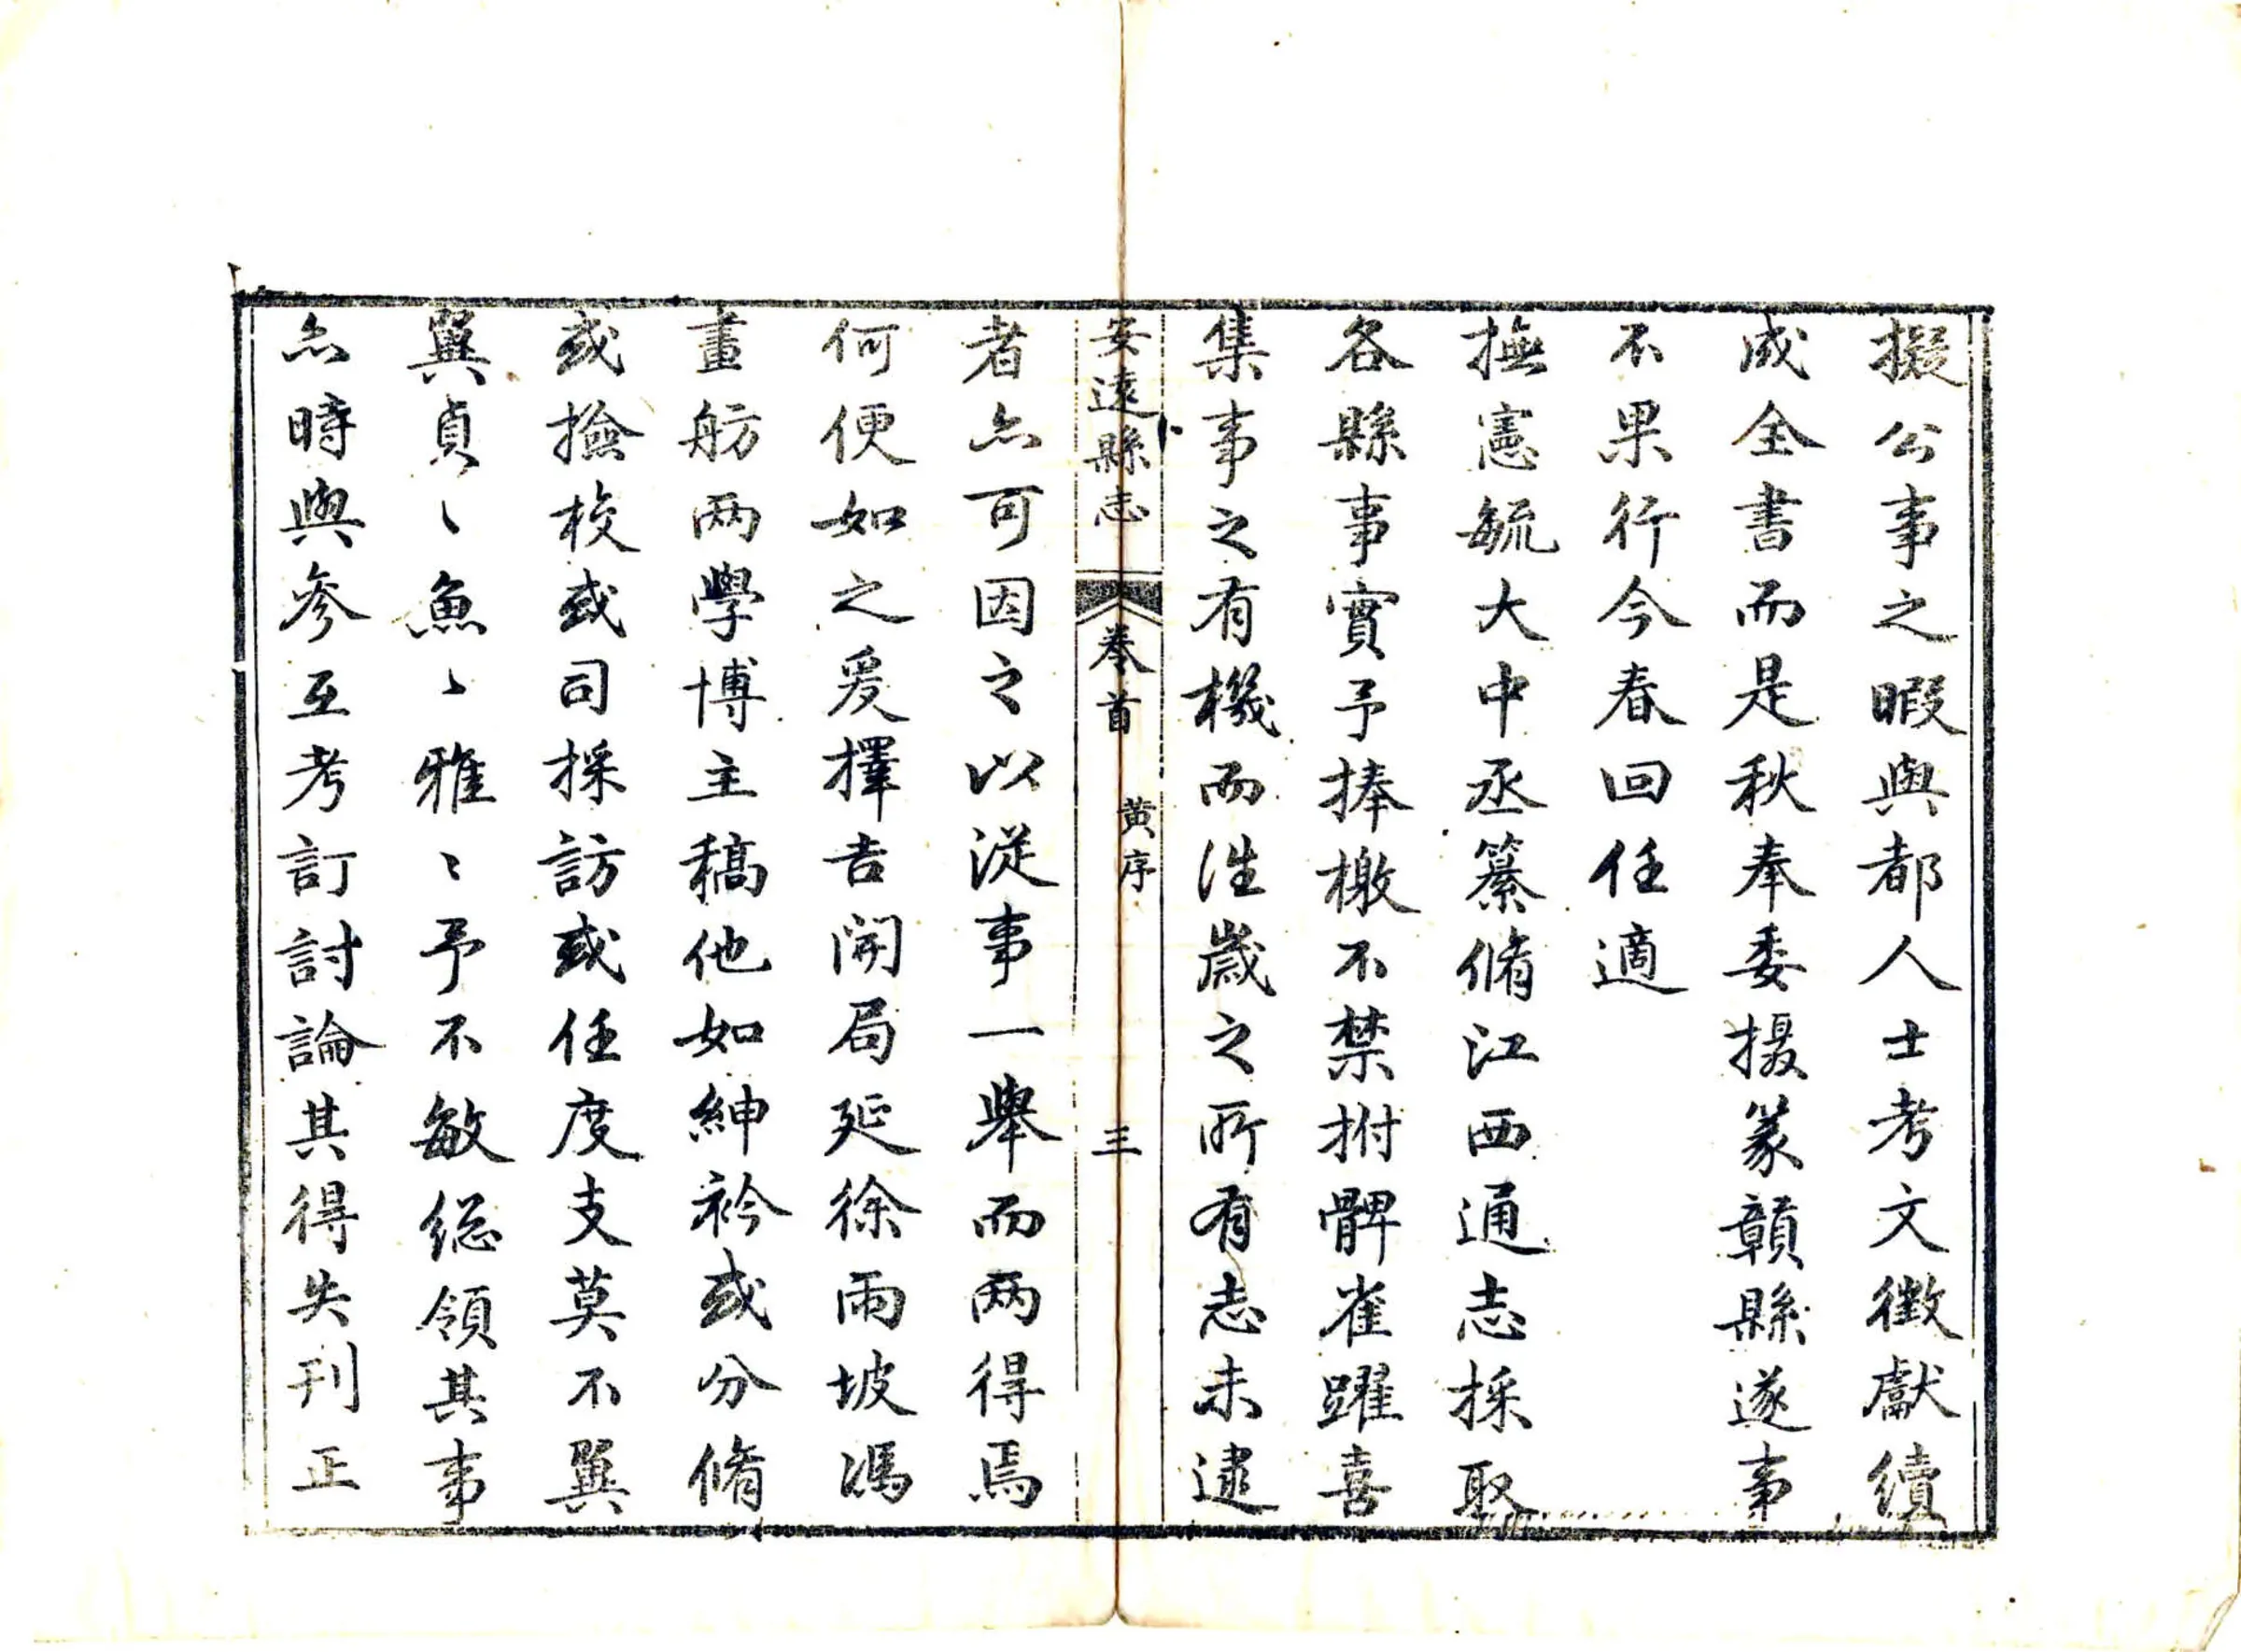 擬公事之暇與都人士考文徵獻續
成全書而是秋奉委摄篆贛縣遂事
不果行今春回任適
撫憲毓大中丞纂脩江西通志採取
各縣事實予捧檄不禁拊髀雀躍喜
集事之有機而往歲之所有志未逮
安遠縣志
卷首
黄序
三
者亦可因之以從事一舉而两得焉
何便如之爰擇吉開局延徐雨坡馮
畫舫两學博主稿他如紳衿或分脩
或撿校或司採訪或任度支莫不巽
巽貞〻魚〻雅〻予不敏總領其事
亦時與參互考訂討論其得失刊正